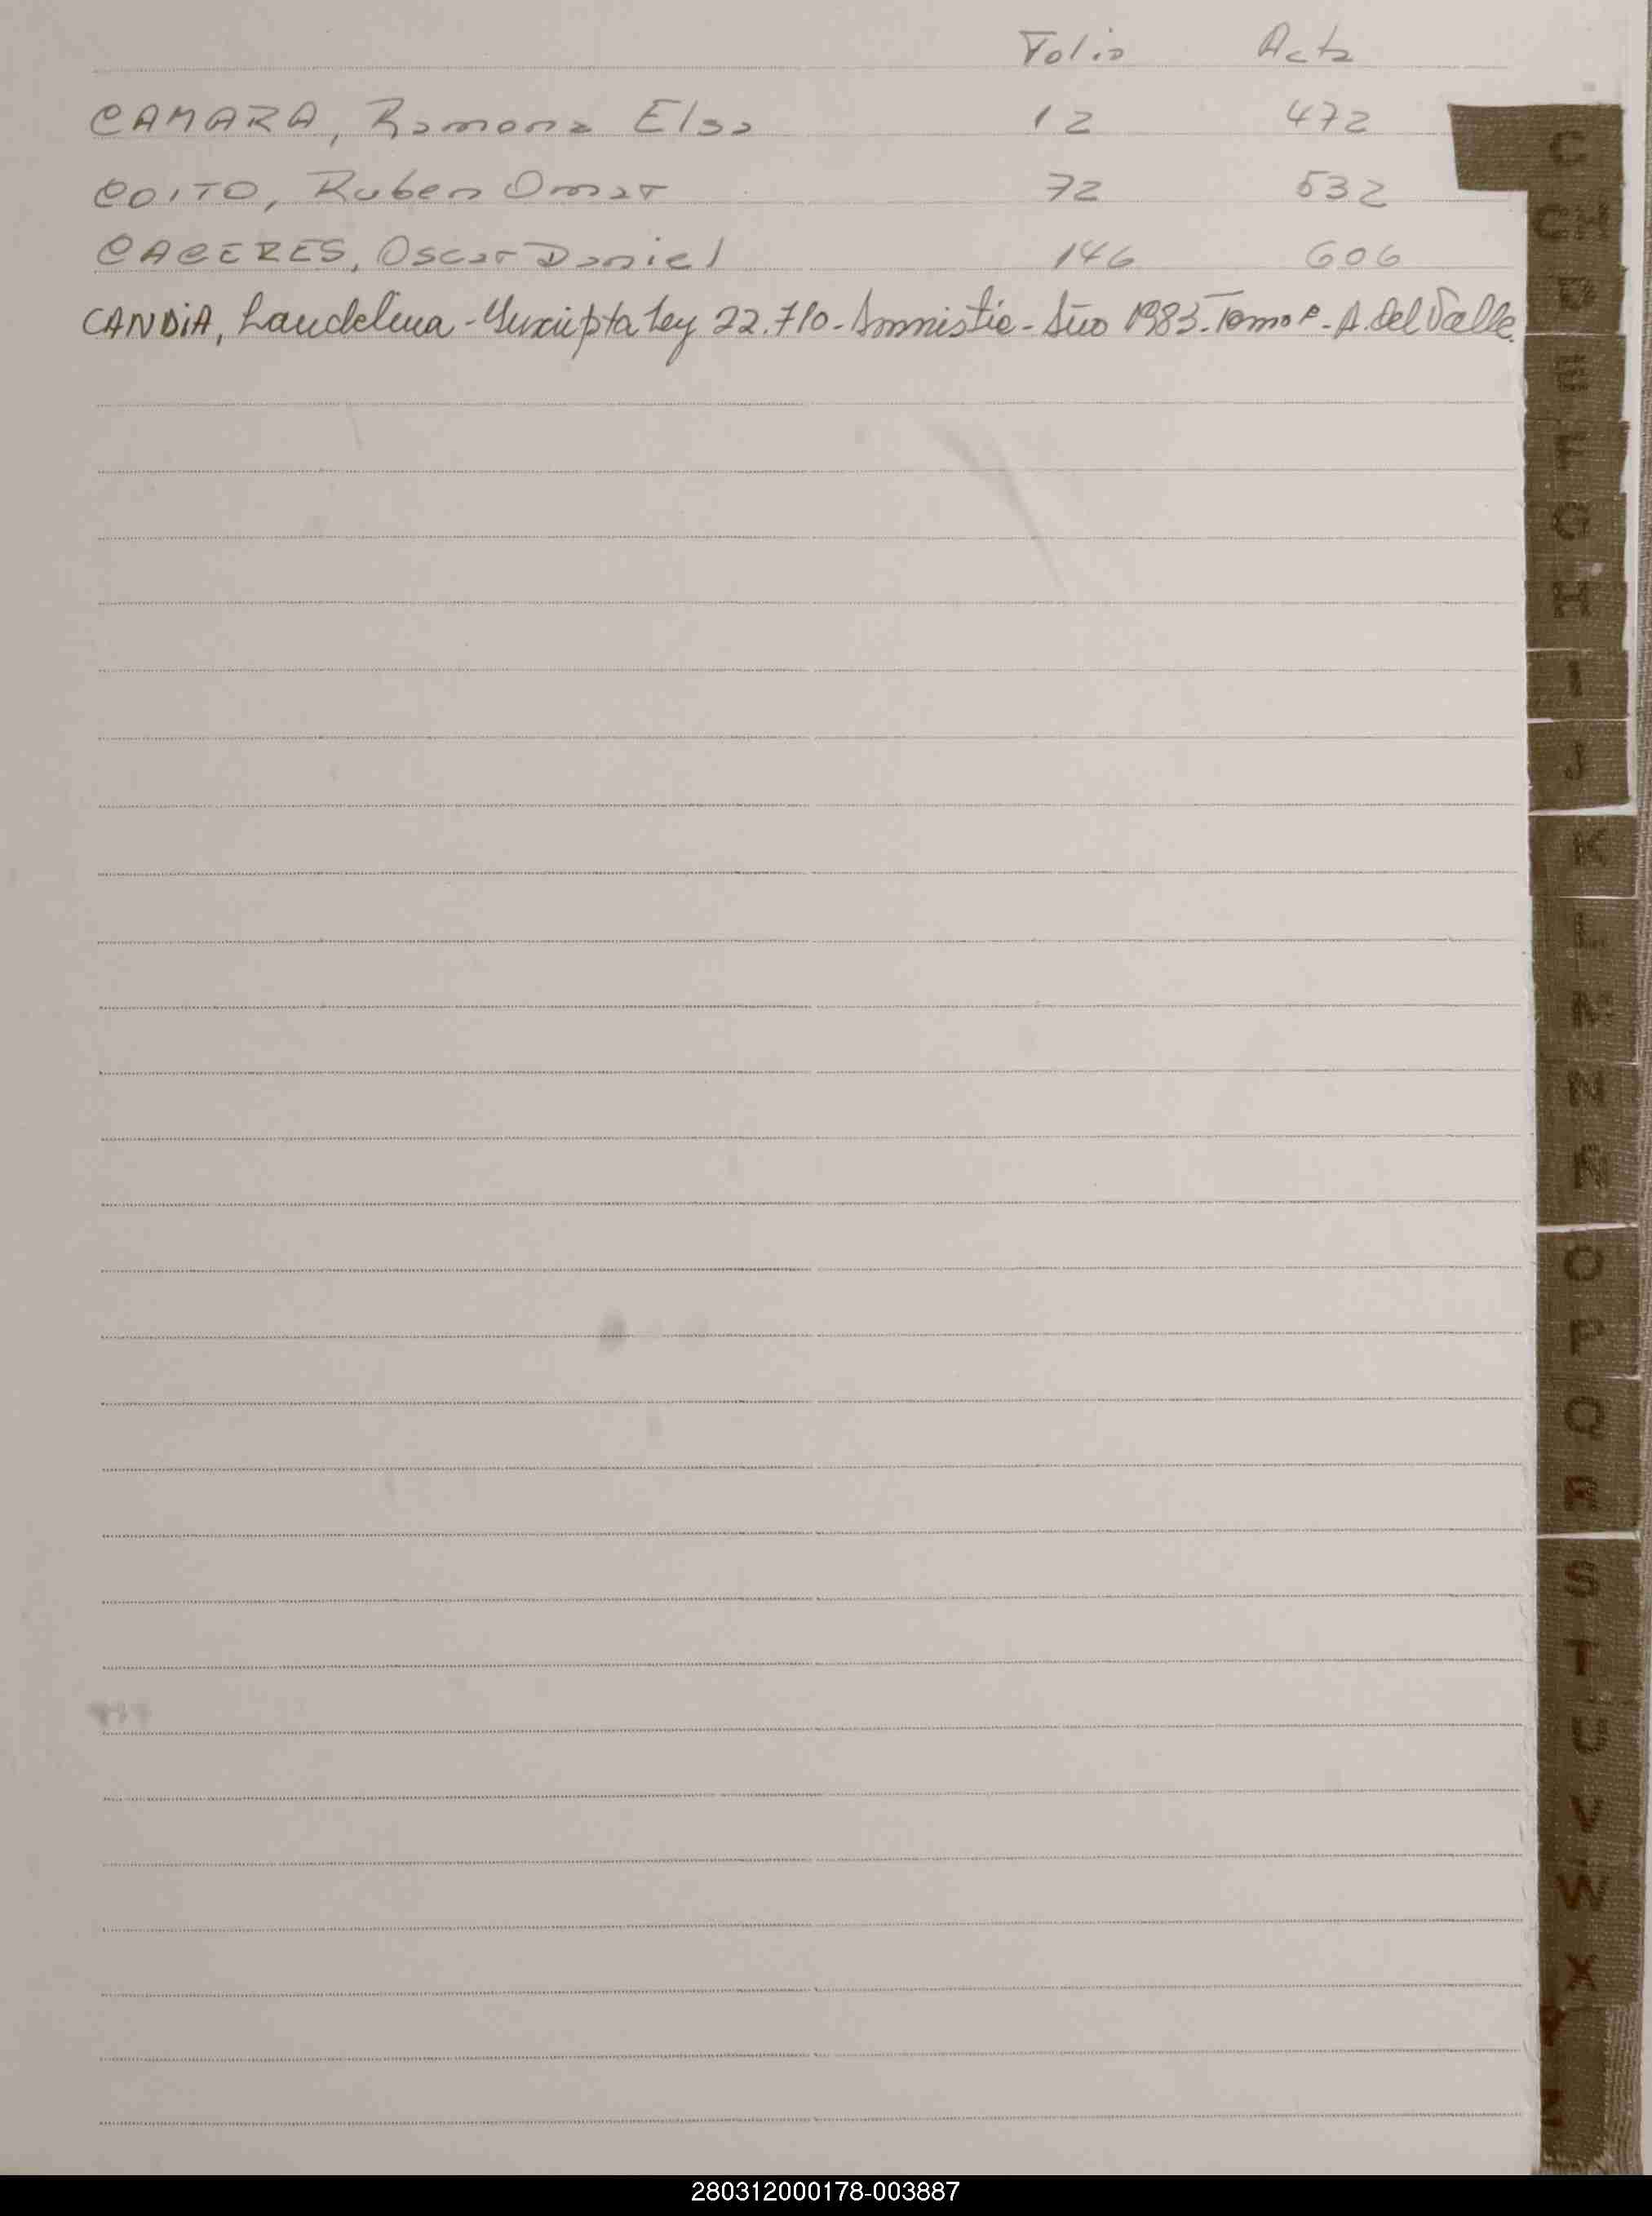 Folio Acta
CAMARA, Ramona Elsa 12 472
COITO, Ruben Omar 72 532
CACERES, Oscar Daniel 146 606
CANDIA, Laudelina - Inscripta Ley 22.710 - Amnistia - Año 1983 - Tomo - A. del Valle.
C
CH
D
E
F
G
H
I
J
K
L
M
N
Ñ
O
P
Q
R
S
T
U
V
W
X
Y
Z
280312000178-003887